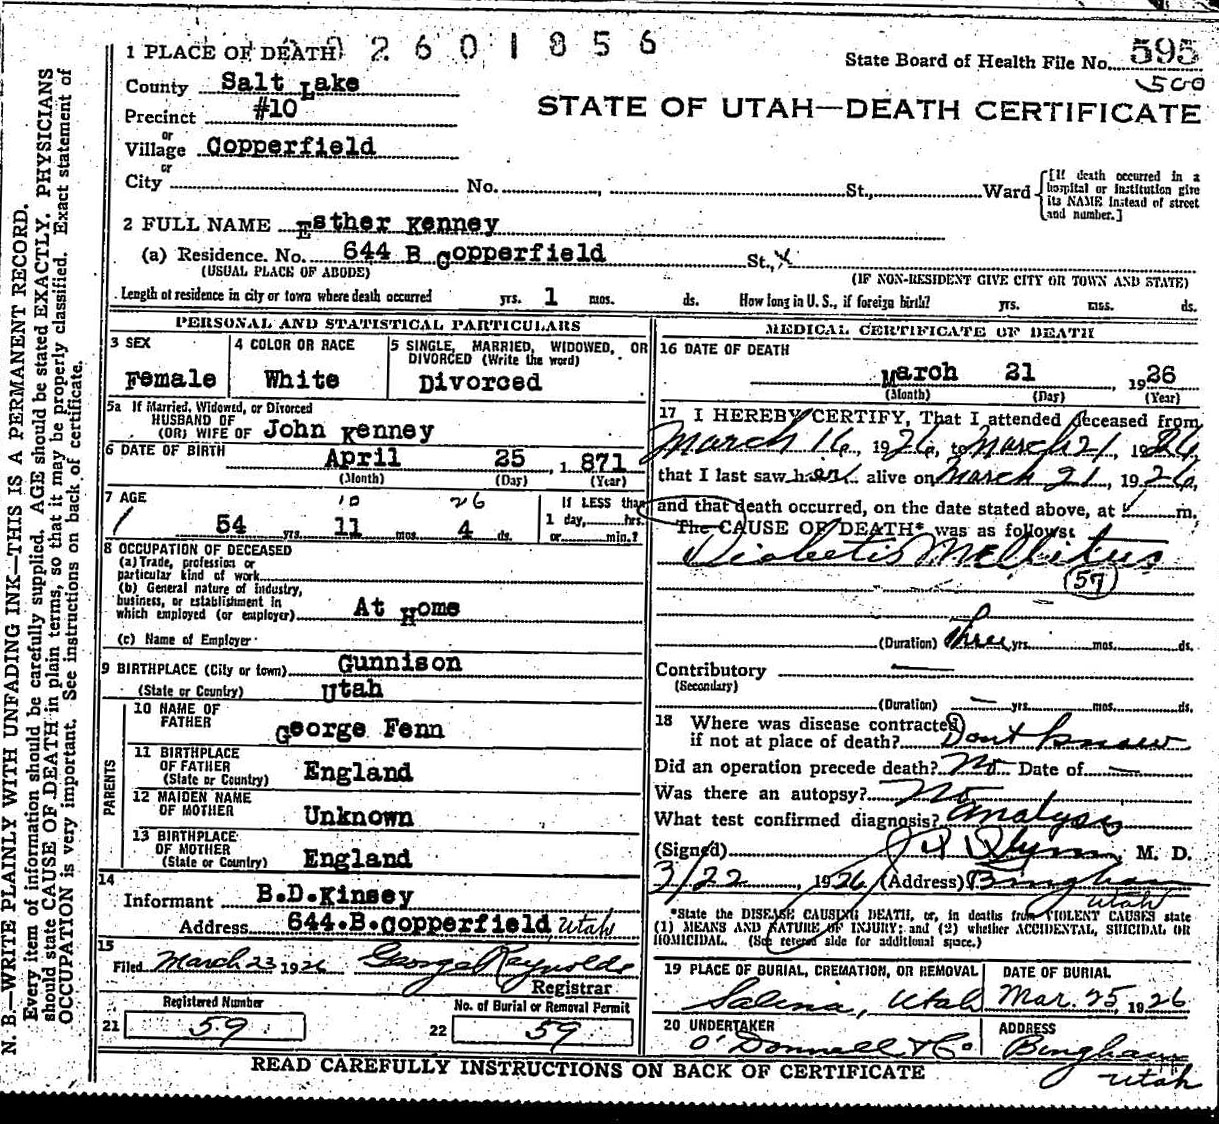 N. B.—WRITE PLAINLY WITH UNFADING INK—THIS IS A PERMANENT RECORD.
Every item of information should be carefully supplied. AGE should be stated EXACTLY. PHYSICIANS
should state CAUSE OF DEATH in plain terms, so that it may be properly classified. Exact statement of
OCCUPATION is very important. See instructions on back of certificate.
1 PLACE OF DEATH 2601856
State Board of Health File No. 595
500
County Salt Lake
STATE OF UTAH—DEATH CERTIFICATE
Precinct #10
or
Village Copperfield
or
City No. St., Ward
[If death occurred in a
hospital or institution give
its NAME instead of street
and number.]
2 FULL NAME Esther Kenney
(a) Residence. No. 644 B Copperfield St., X
(USUAL PLACE OF ABODE) (IF NON-RESIDENT GIVE CITY OR TOWN AND STATE)
Length of residence in city or town where death occurred yrs. 1 mos. ds. How long in U. S., if foreign birth? yrs. mos. ds.
PERSONAL AND STATISTICAL PARTICULARS
3 SEX
Female
4 COLOR OR RACE
White
5 SINGLE, MARRIED, WIDOWED, OR
DIVORCED (Write the word)
Divorced
5a If Married, Widowed, or Divorced
HUSBAND OF
(OR) WIFE OF John Kenney
6 DATE OF BIRTH April 25, 1871
(Month) (Day) (Year)
7 AGE 10 26
54 yrs. 11 mos. 4 ds.
If LESS than
1 day, hrs.
or min.?
8 OCCUPATION OF DECEASED
(a) Trade, profession or
particular kind of work
(b) General nature of industry,
business, or establishment in
which employed (or employer) At Home
(c) Name of Employer
9 BIRTHPLACE (City or town) Gunnison
(State or Country) Utah
PARENTS
10 NAME OF
FATHER George Fenn
11 BIRTHPLACE
OF FATHER
(State or Country) England
12 MAIDEN NAME
OF MOTHER Unknown
13 BIRTHPLACE
OF MOTHER
(State or Country) England
14
Informant B.D.Kinsey
Address 644.B.Copperfield Utah
15
Filed March 23 1926 George Reynolds
Registrar
Registered Number
21 59
No. of Burial or Removal Permit
22 59
MEDICAL CERTIFICATE OF DEATH
16 DATE OF DEATH
March 21, 1926
(Month) (Day) (Year)
17 I HEREBY CERTIFY, That I attended deceased from
March 16, 1926, to March 21, 1926,
that I last saw her alive on March 21, 1926,
and that death occurred, on the date stated above, at m.
The CAUSE OF DEATH* was as follows:
Diabetis Mellitus
57
(Duration) three yrs. mos. ds.
Contributory —
(Secondary)
(Duration) — yrs. mos. ds.
18 Where was disease contracted
if not at place of death? Dont Know
Did an operation precede death? No Date of —
Was there an autopsy? No
What test confirmed diagnosis? Analysis
(Signed) M. D.
3/22, 1926 (Address) Bingham
Utah
*State the DISEASE CAUSING DEATH, or, in deaths from VIOLENT CAUSES state
(1) MEANS AND NATURE OF INJURY; and (2) whether ACCIDENTAL, SUICIDAL OR
HOMICIDAL. (See reverse side for additional space.)
19 PLACE OF BURIAL, CREMATION, OR REMOVAL
Salina, Utah
DATE OF BURIAL
Mar. 25, 1926
20 UNDERTAKER
O'Donnell & Co.
ADDRESS
Bingham
Utah
READ CAREFULLY INSTRUCTIONS ON BACK OF CERTIFICATE